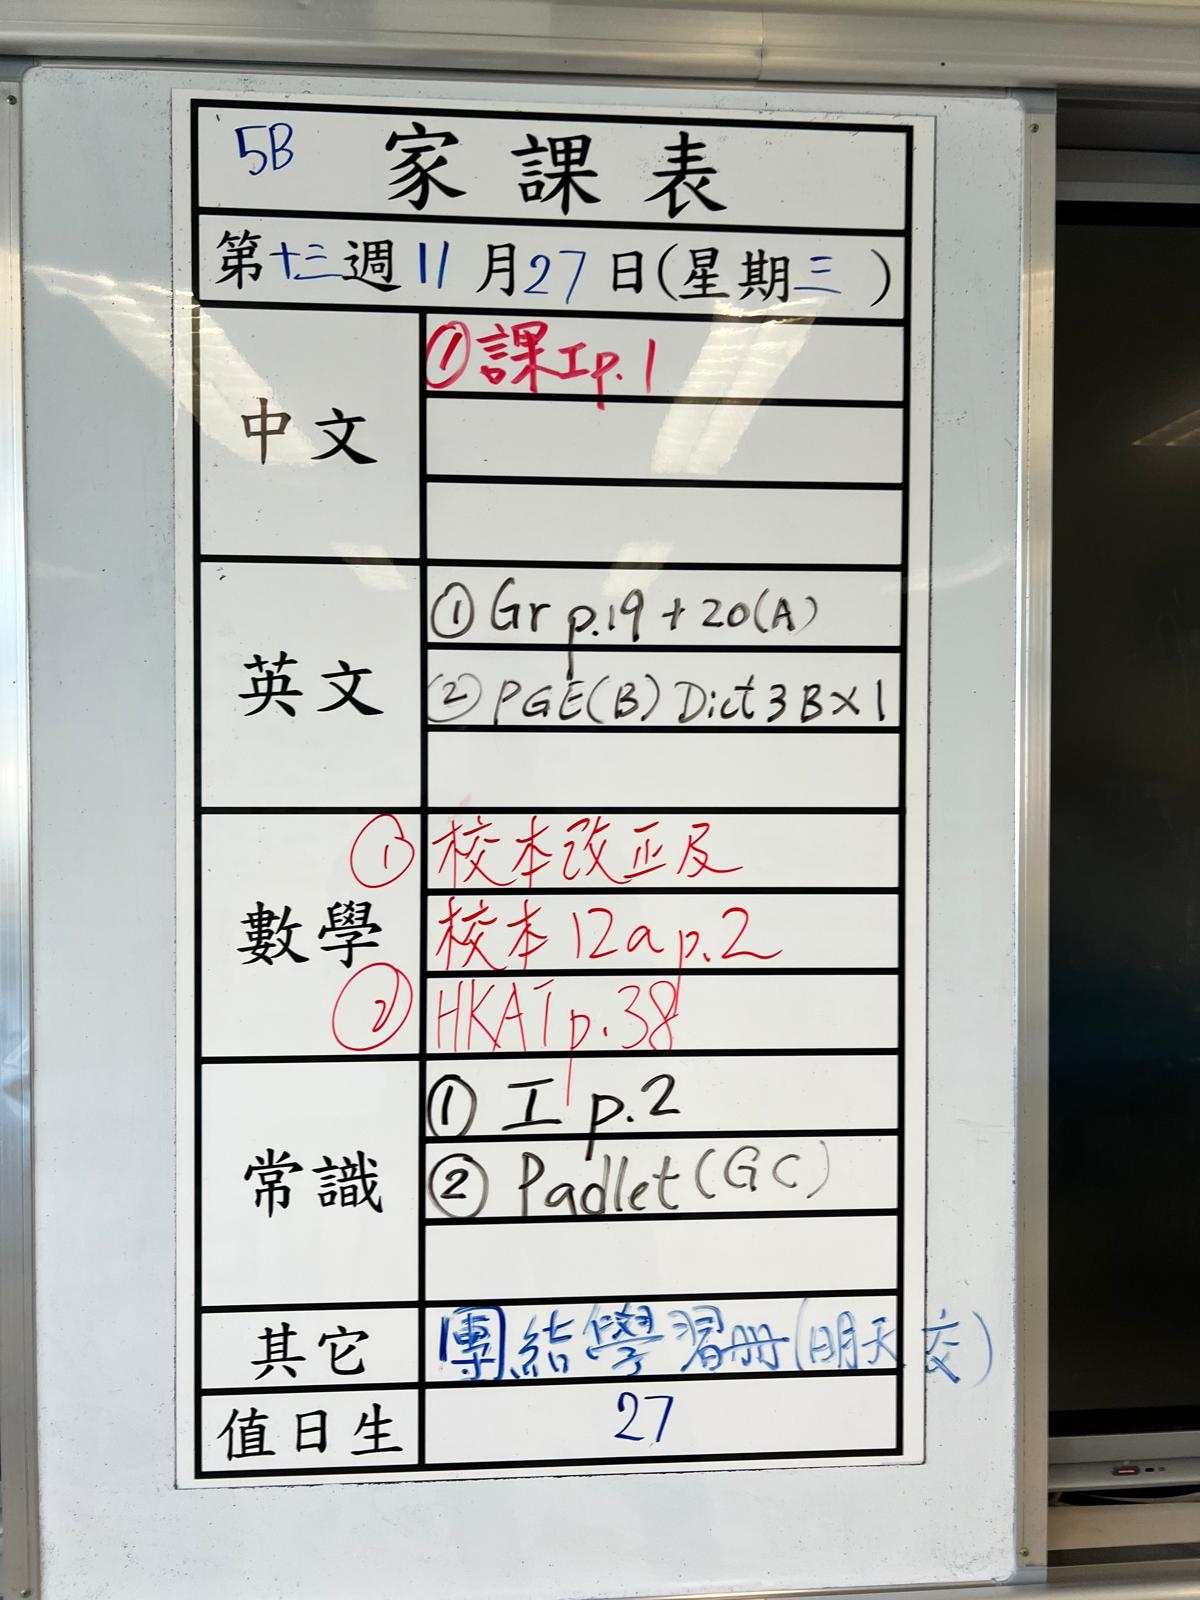 5B 家課表
第十三週11月27日(星期三)
中文
① 課工p.1
英文
① Gr p.19 + 20(A)
② PGE(B) Dict 3B×1
數學
① 校本改正及
校本12a p.2
② HKAT p.38
常識
① 工 p.2
② Padlet (GC)
其它
團結學習冊(明天交)
值日生
27